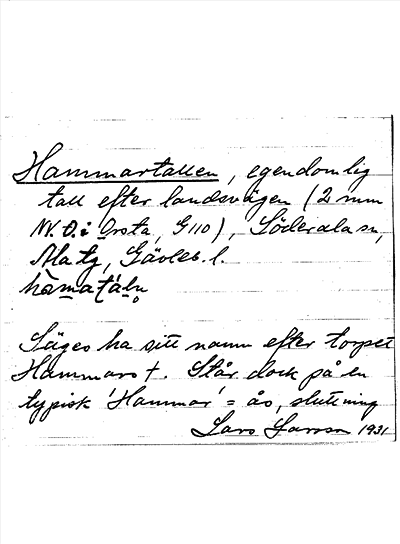 Hammartallen, egendomlig
tall efter landsvägen (2 mm
N.O. i Orsta, G110), Söderala sn,
Ala tg, Gävleb. l.
Säges ha sitt namn efter torpet
Hammars †. Står dock på en
typisk 'Hammar' = ås, sluttning
Lars Larsson 1931